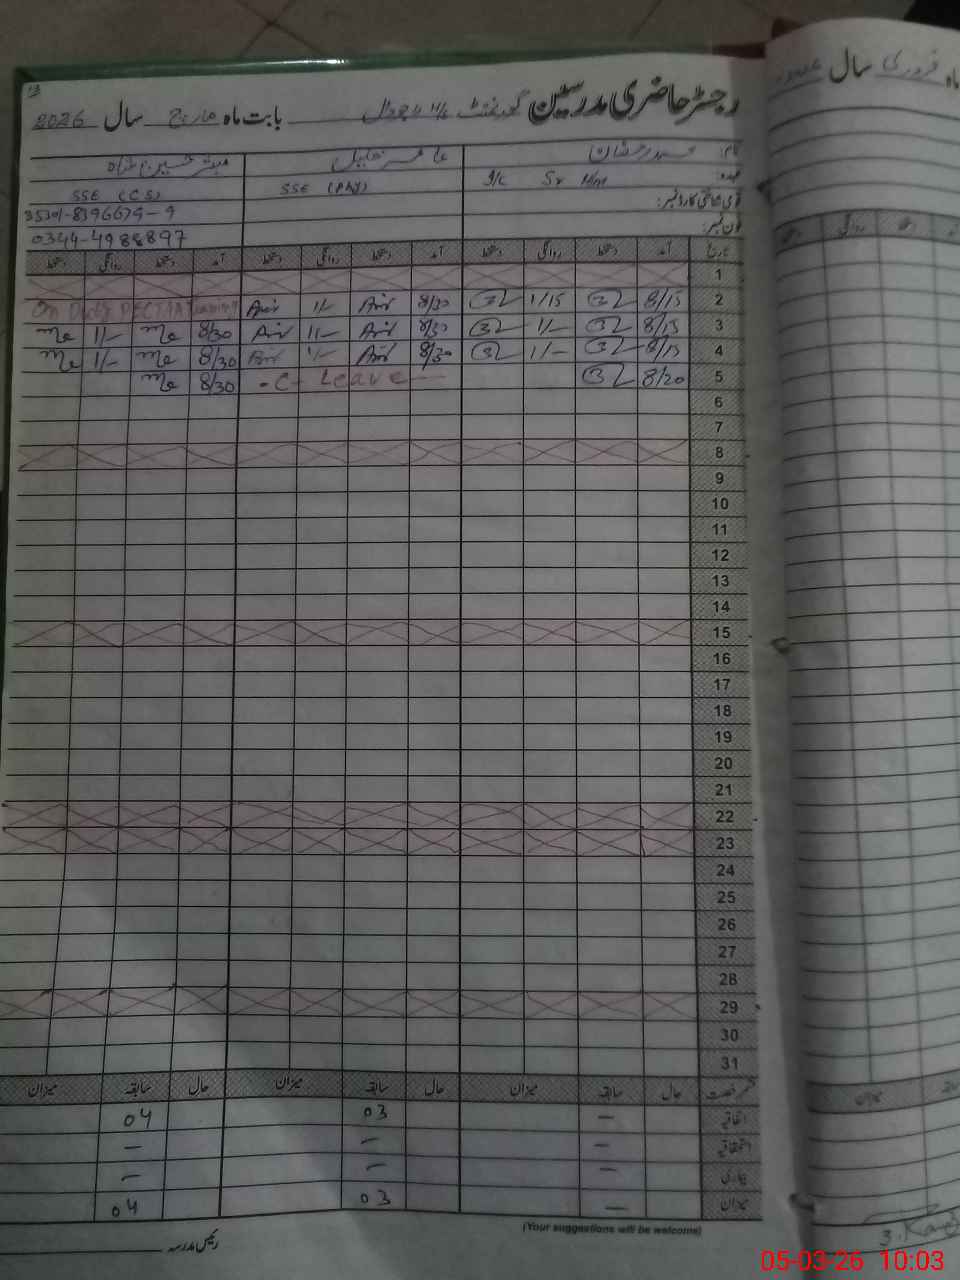 رجسٹر حاضری مدرسین گورنمنٹ بابت ماہ مارچ سال 2026
ماہ فروری سال
نام: محمد رمضان عامر خلیل مبشر حسین شاہ
عہدہ: I/C Sr H/M SSE (Phy) SSE (CS)
قومی شناختی کارڈ نمبر: 35301-8396679-9
فون نمبر: 0344-4988897
تاریخ آمد دستخط روانگی دستخط آمد دستخط روانگی دستخط آمد دستخط روانگی دستخط
1
2 8/15 1/15 8/30 1/- On Duty PECTAA Training
3 8/15 1/- 8/30 1/- 8/30 1/-
4 8/15 1/- 8/30 1/- 8/30 1/-
5 8/20 C-Leave 8/30
6
7
8
9
10
11
12
13
14
15
16
17
18
19
20
21
22
23
24
25
26
27
28
29
30
31
قسم رخصت حال سابقہ میزان حال سابقہ میزان حال سابقہ میزان
اتفاقیہ – 03 04
استحقاقیہ – – –
بیماری – – –
میزان – 03 04
(Your suggestions will be welcome)
رئیس مدرسہ
05-03-26 10:03